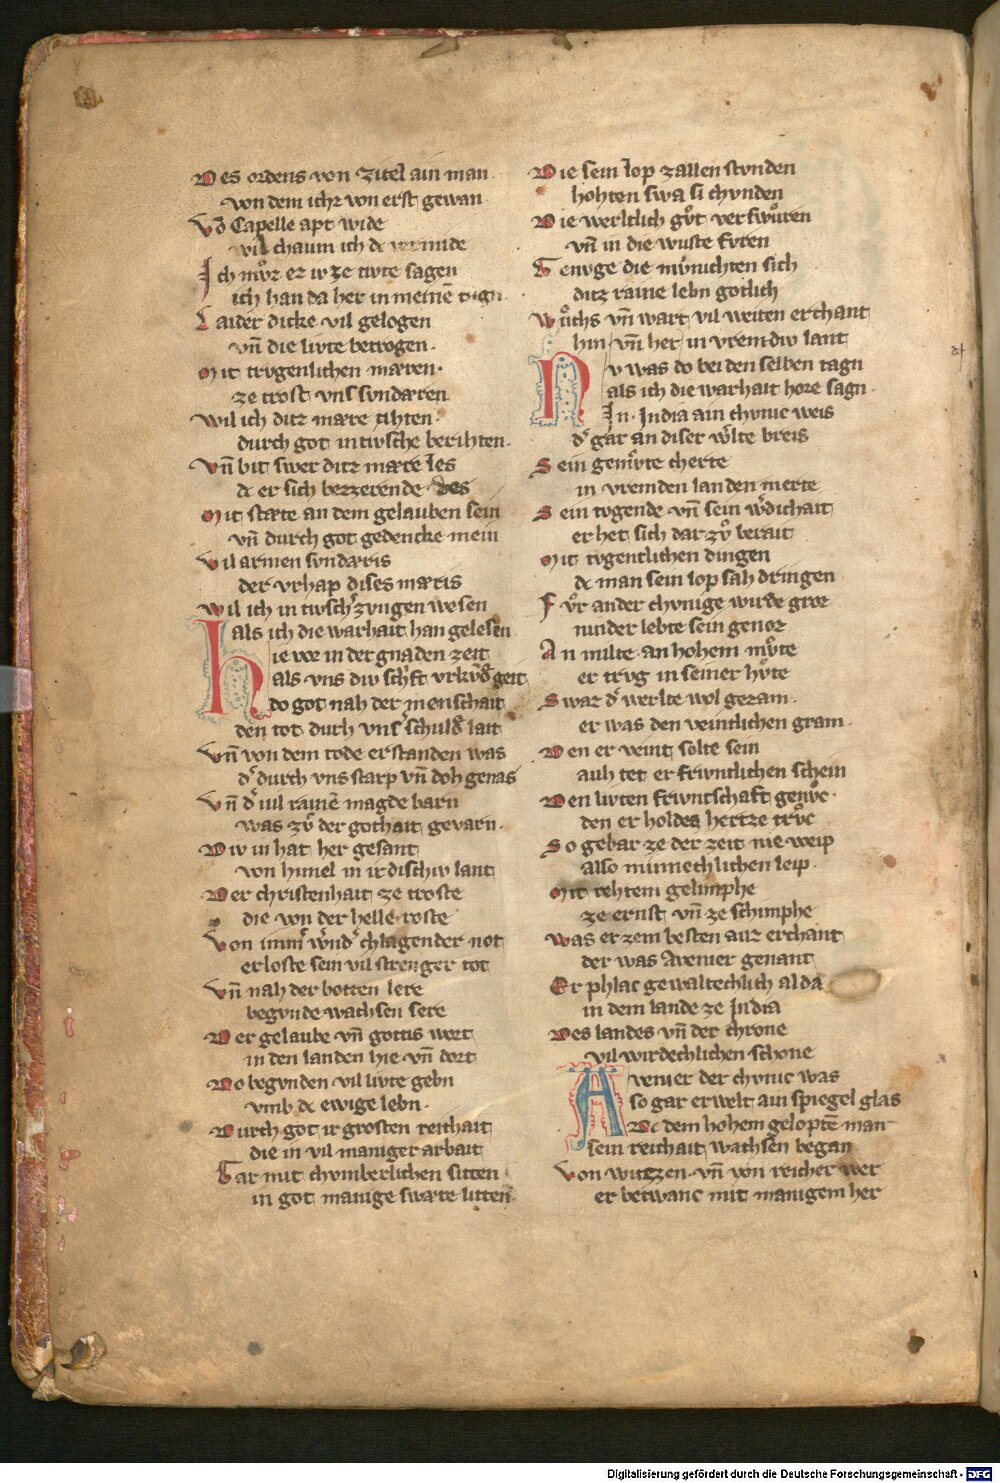 Des ordens von Zitel ain man.
von dem ichz von erst gewan
Vō Capelle apt wide
wil chaum ich dc vermide
Ich mv̊z er iv ze tivte sagen
ich han da her in meinē tagn
Laider dicke vil gelogen
vn̄ die livte betrogen.
Mit trvgenlichen mæren.
ze trost vnsˀ svndæren
Wil ich ditz mære tihten.
durch got in tivsche berihten.
Vn̄ bit swer ditz mære les
dc er sich bezzerende des
Mit stæte an dem gelauben sein
vn̄ durch got gedencke mein
Vil armen svndæris
der vrhap dises mæris
Wil ich in tivschˀ zvngen wesen
als ich die warhait han gelesen
Hie vor in der gnaden zeit
als vns div schˀft vrkv̄dˀ geit
do got nah der menschait
den tot durh vnsˀ schuldˀ lait
Vn̄ von dem tode erstanden was
dˀ durch vns starp vn̄ doh genas
Vn̄ dˀ vil rainē magde barn
was zv̊ der gothait gevarn.
Div in hat her gesant
von himel in irdischiv lant
Der christenhait ze troste
die von der helle roste
Von immˀ wˀndˀ chlagender not
erloste sein vil strenger tot
Vn̄ nah der botten lere
begvnde wachsen sere
Der gelaube vn̄ gottis wort
in den landen hie vn̄ dort
Do begvnden vil livte gebn
vmb dc ewige lebn.
Durch got ir grosten reichait
die in vil maniger arbait
Gar mit chvmberlichen sitten
in got manige swære litten
Die sein lop zallen stvnden
hohten swa si chvnden
Die werltlich gv̊t verswv̊ren
vn̄ in die wuste fvren
Genvge die mvnichten sich
ditz raine lebn gotlich
Wv̊chs vn̄ wart vil weiten erchant
hin vn̄ her in vremdiv lant
Nv was do bei den selben tagn
als ich die warhait hore sagn.
In India ain chvnic weis
dˀ gar an diser wˀlte breis
Sein gemv̊te cherte
in vremden landen merte
Sein tvgende vn̄ sein wˀdichait
er het sich dar zv̊ berait
Mit tvgentlichen dingen
dc man sein lop sah dringen
Fv̊r ander chvnige wirde groz
ninder lebte sein genoz
An milte an hohem mv̊te
er trvg in seiner hv̊te
Swaz dˀ werlte wol gezam.
er was den veintlichen gram.
Den er veint solte sein
auh tet er frivntlichen schein
Den livten frivntschaft genv̊c.
den er holdes hertze trv̊c
So gebar ze der zeit nie weip
also minnechlichen leip.
Mit rehtem gelimphe
ze ernst vn̄ ze schimphe
Was er zem besten auz erchant
der was Avenier genant
Er phlac gewaltechlich al da
in dem lande ze India
Des landes vn̄ der chrone
vil wirdechlichen schone
Avenier der chvnic was
so gar erwelt ain spiegel glas
Dc dem hohem geloptē man
sein reichait wachsen began
Von witzen vn̄ von reicher wer
er betwanc mit manigem her
Digitalisierung gefördert durch die Deutsche Forschungsgemeinschaft - DFG